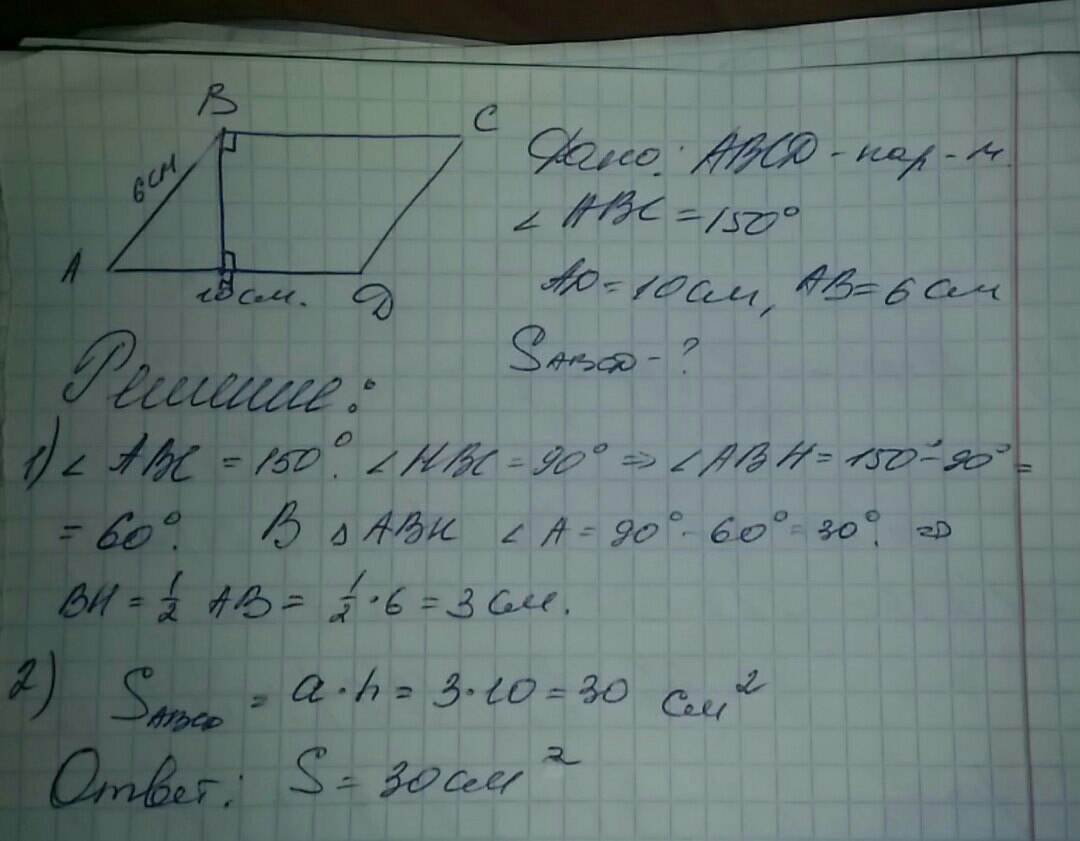 B
C
6 см
A
10 см.
D
Дано: ABCD - пар-м.
∠ ABC = 150°
AD = 10 см, AB = 6 см
S ABCD - ?
Решение:
1) ∠ ABC = 150°. ∠ HBC = 90° ⇒ ∠ ABH = 150° - 90° =
= 60°. В △ ABH ∠ A = 90° - 60° = 30°. ⇒
BH = 1/2 AB = 1/2 · 6 = 3 см.
2) S ABCD = a · h = 3 · 10 = 30 см²
Ответ: S = 30 см²